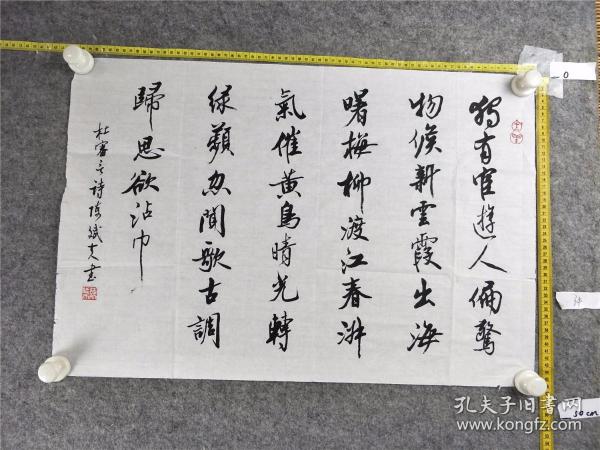 獨有宦遊人偏驚
物候新雲霞出海
曙梅柳渡江春淑
氣催黃鳥晴光轉
綠蘋忽聞歌古調
歸思欲沾巾
杜審言詩陳斌夫書
0
50cm
孔夫子旧书网
www.kongfz.com